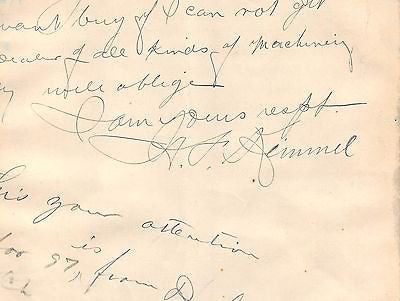 want buy if I can not get
dealer of all kinds of Machinery
will oblige
I am yours respt.
Kimmel
your attention
is
97, from